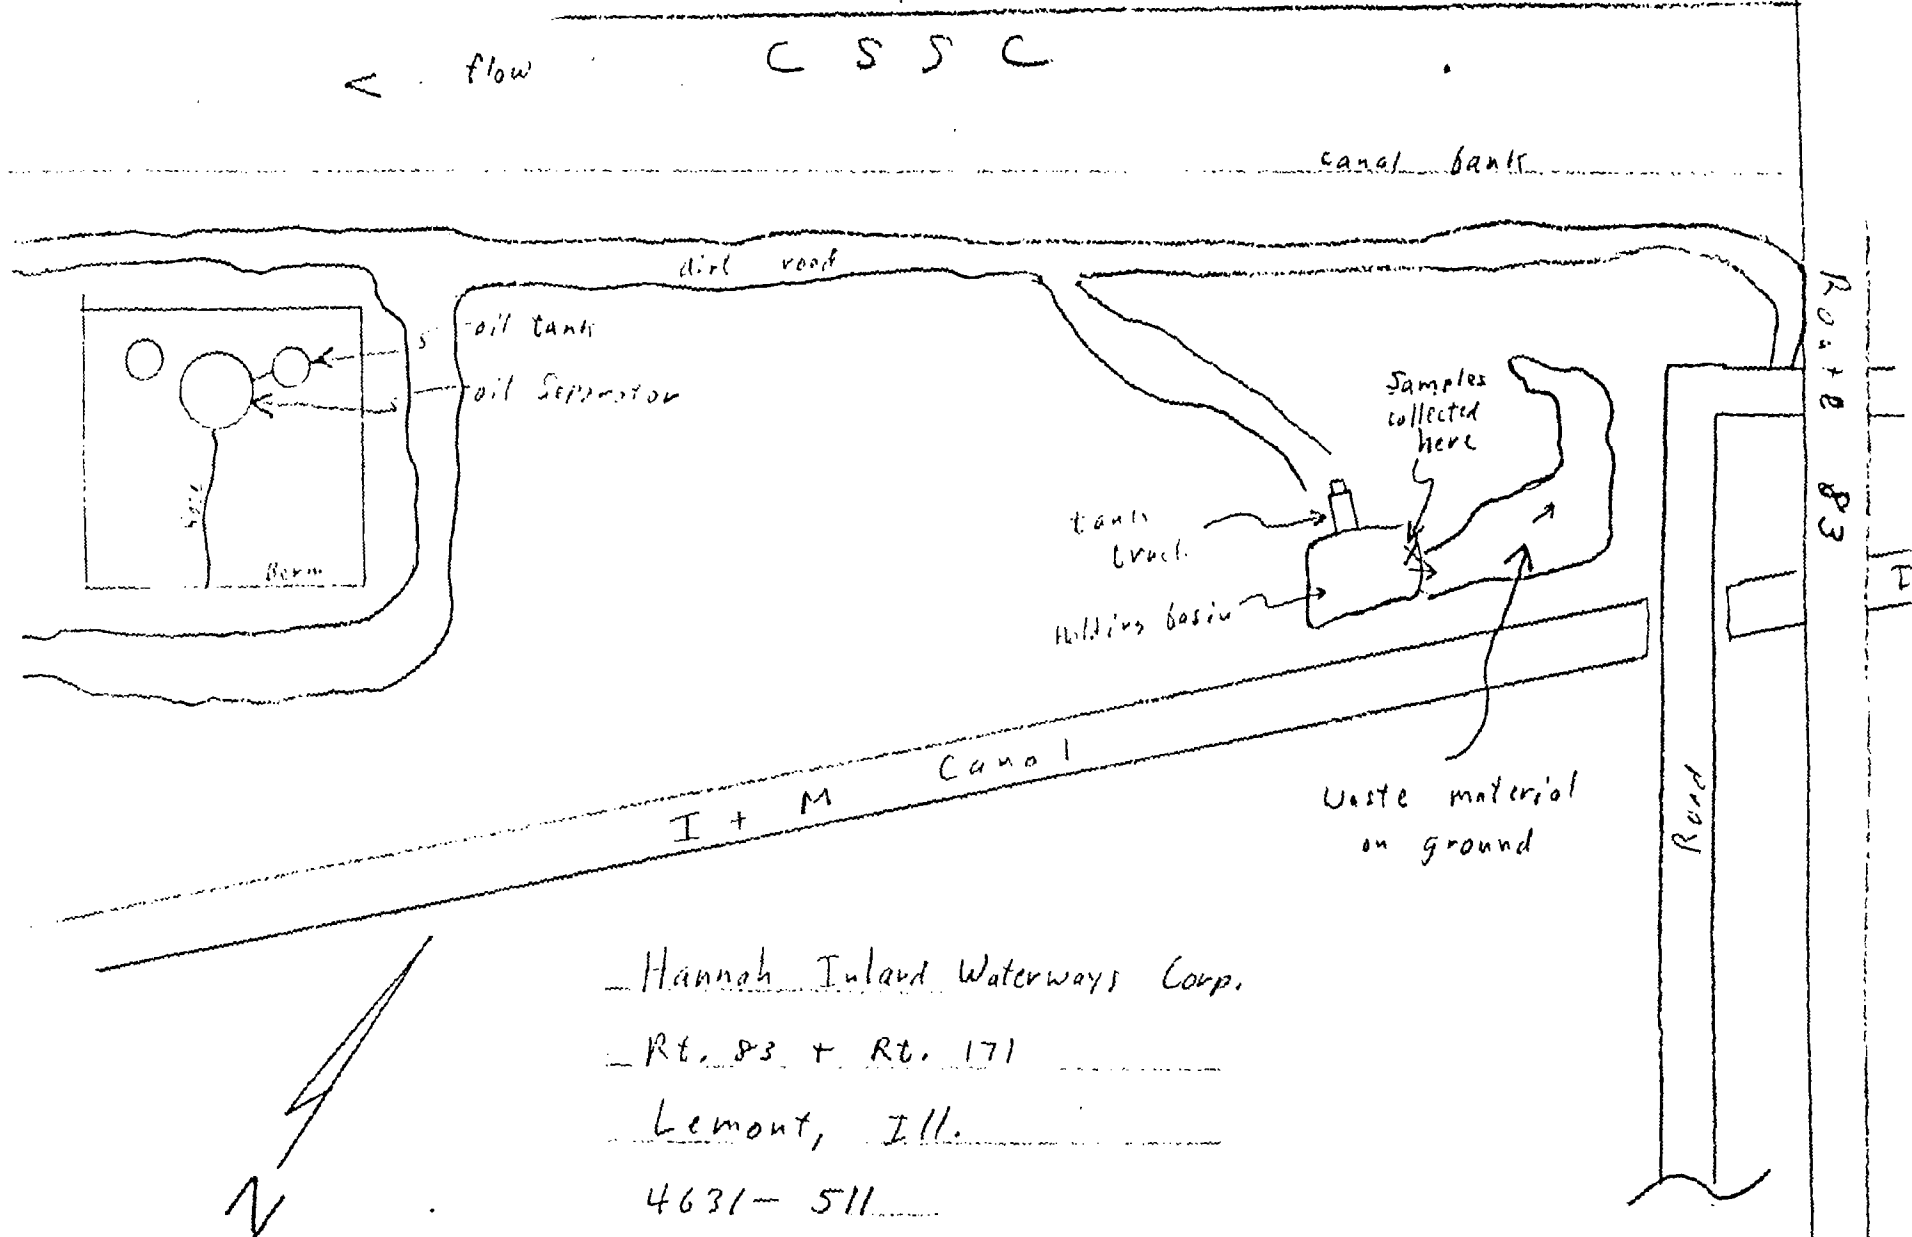 C S S C
< flow
canal bank
dirt road
oil tank
oil Separator
Berm
Samples
collected
here
tank
truck
Holding basin
Route 83
I
I + M Canal
Waste material
on ground
Road
Hannah Inland Waterways Corp.
Rt. 83 + Rt. 171
Lemont, Ill.
4631- 511
N